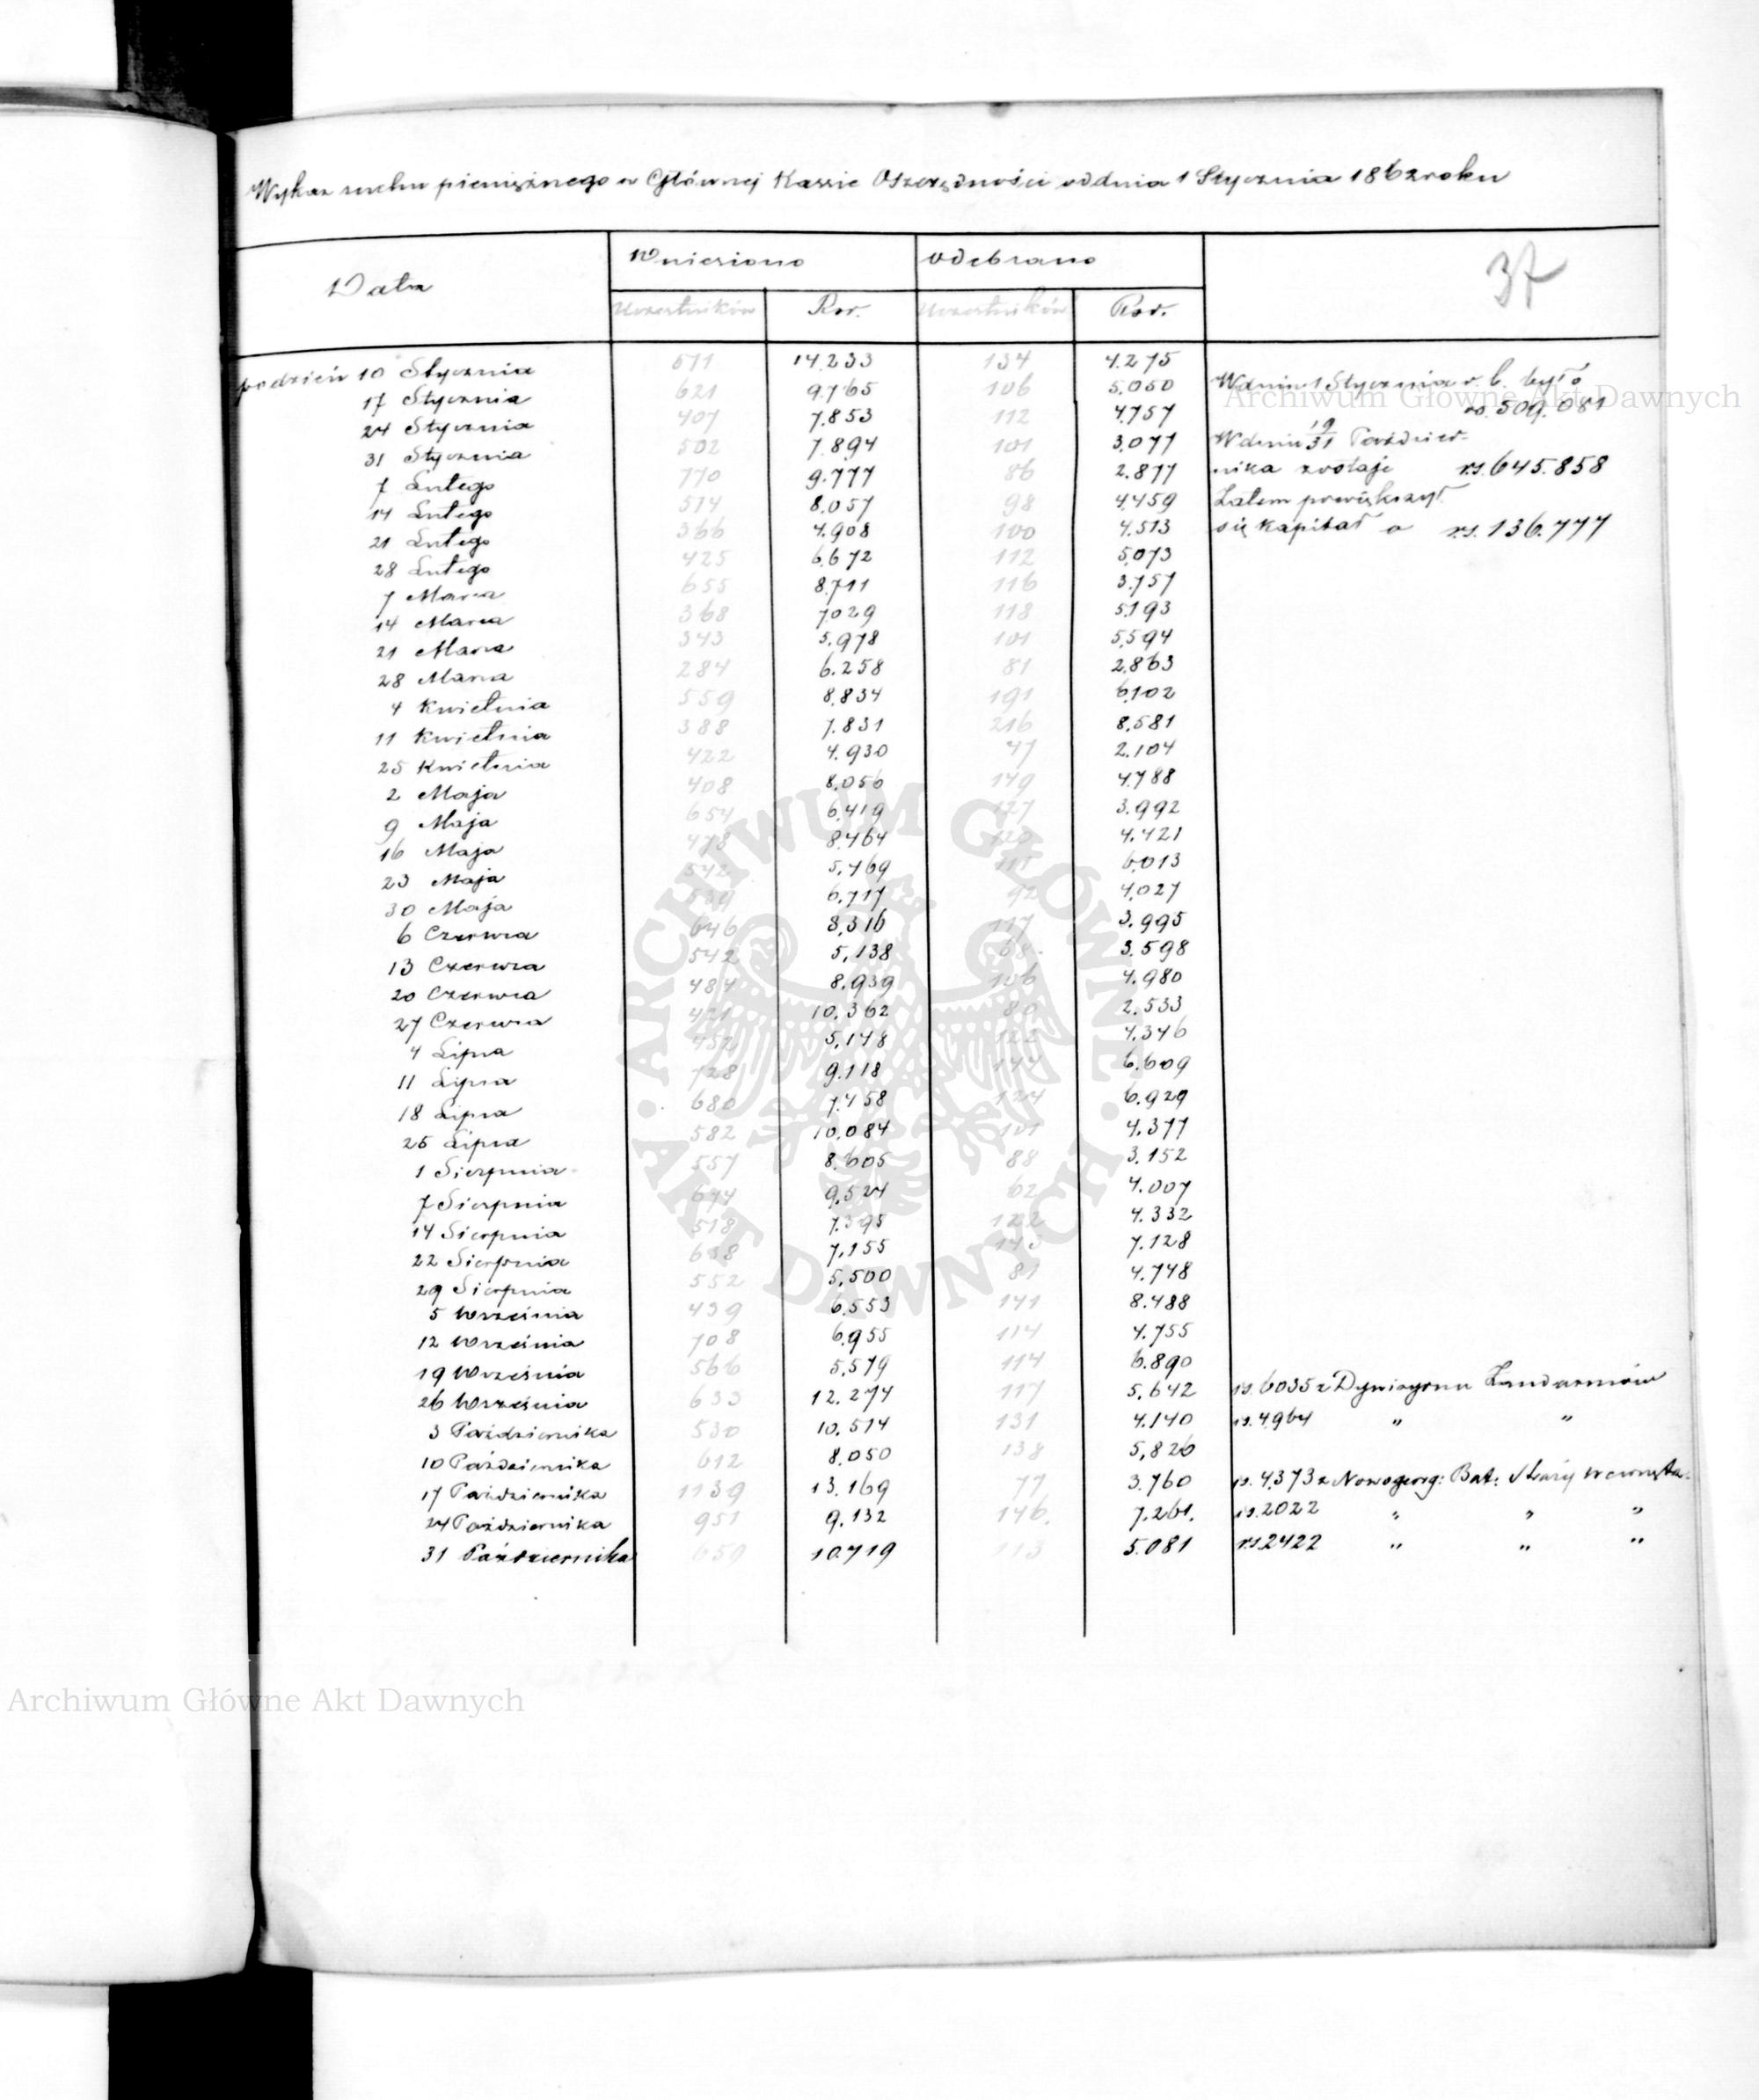 Wykaz ruchu pieniężnego w Głównej Kassie Oszczędności od dnia 1 Stycznia 1862 roku
37
Data Wniesiono Odebrano
Uczestników Rsr. Uczestników Rsr.
po dzień 10 Stycznia 571 14.233 134 4.275
17 Stycznia 621 9.765 106 5.050 W dniu 1 Stycznia r. b. było
24 Stycznia 407 7.853 112 4.757 rs. 509.081
31 Stycznia 502 7.894 101 3.077 W dniu 19/31 Paździer-
7 Lutego 770 9.777 86 2.877 nika zostaje rs. 645.858
14 Lutego 514 8.057 98 4.459 Zatem powiększył
21 Lutego 366 4.908 100 4.513 się kapitał o rs. 136.777
28 Lutego 425 6.672 112 5.073
7 Marca 655 8.711 116 3.757
14 Marca 368 7.029 118 5.193
21 Marca 343 5.978 101 5.594
28 Marca 284 6.258 81 2.863
4 Kwietnia 559 8.834 191 6.102
11 Kwietnia 388 7.831 216 8.581
25 Kwietnia 422 4.930 47 2.104
2 Maja 408 8.056 149 4.788
9 Maja 654 6.419 127 3.992
16 Maja 478 8.464 4.421
23 Maja 542 5.469 6.013
30 Maja 6.717 92 4.027
6 Czerwca 646 8.316 117 3.995
13 Czerwca 542 5.138 3.598
20 Czerwca 484 8.939 126 4.980
27 Czerwca 10.362 80 2.533
4 Lipca 452 5.148 122 4.346
11 Lipca 728 9.118 144 6.609
18 Lipca 680 7.458 124 6.929
25 Lipca 582 10.084 101 4.377
1 Sierpnia 557 8.605 88 3.152
7 Sierpnia 9.524 62 4.007
14 Sierpnia 518 7.395 122 4.332
22 Sierpnia 638 7.155 143 7.128
29 Sierpnia 552 5.500 81 4.748
5 Września 439 6.553 141 8.488
12 Września 708 6.955 114 4.755
19 Września 566 5.579 114 6.890
26 Września 633 12.274 117 5.642 rs. 6035 z Dywizyonu Żandarmów
3 Października 530 10.514 131 4.140 rs. 4.964 " "
10 Października 612 8.050 138 5.826
17 Października 1139 13.169 77 3.760 rs. 4.373 z Nowogeorg: Bat: Straży wewnętrz.
24 Października 951 9.132 146. 7.261. rs. 2022 " " "
31 Października 659 10.719 113 5.081 rs. 2422 " " "
Archiwum Główne Akt Dawnych
ARCHIWUM GŁÓWNE AKT DAWNYCH
Archiwum Główne Akt Dawnych